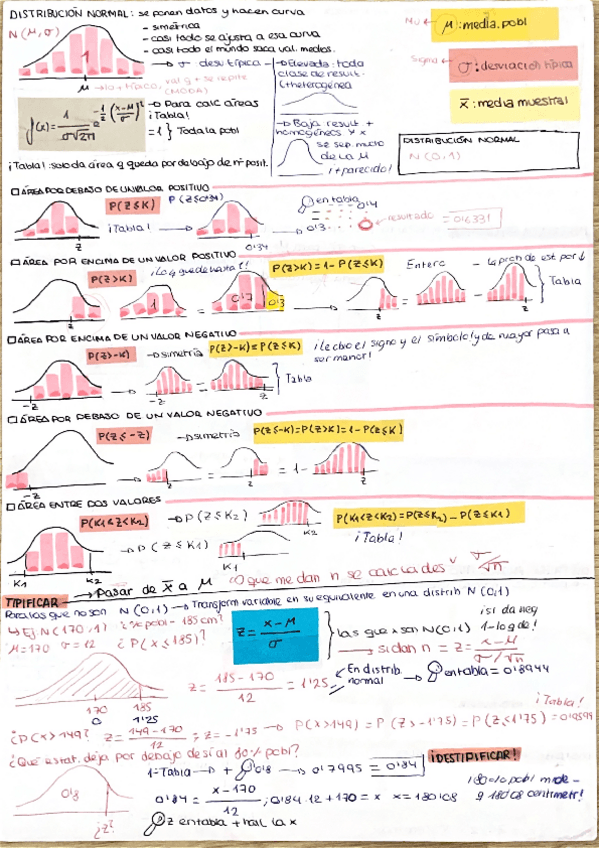 DISTRIBUCIÓN NORMAL: se ponen datos y hacen curva
N(μ,σ)
- simétrica
- casi todo se ajusta a esa curva
- casi todo el mundo saca val. medios.
Mu ← μ: media pobl
Sigma ← σ: desviación típica
x̄: media muestral
1
σ desv típica
→ Elevada: toda clase de result. (+heterogénea
→ Baja result + homogéneos y x se sep. mucho de la μ
¡+parecido!
μ → lo + típico, val q + se repite (MODA)
f(x) = 1/(σ√2π) e^(-1/2((x-μ)/σ)²)
→ Para calc áreas ¡Tabla!
= 1 } Toda la pobl
DISTRIBUCIÓN NORMAL
N(0,1)
¡Tabla!: solo da área q queda por debajo de nº posit.
□ ÁREA POR DEBAJO DE UN VALOR POSITIVO
P(Z≤K)
P(Z≤0'34)
¡Tabla!
en tabla
0'4
0'3
resultado = 0'6331
z
0'34
□ ÁREA POR ENCIMA DE UN VALOR POSITIVO
P(Z>K)
¡Lo q quede hasta 1!
P(Z>K)=1-P(Z≤K)
Entera
- la prob de est por ↓
Tabla
1
0'7
0'3
z
□ ÁREA POR ENCIMA DE UN VALOR NEGATIVO
P(Z>-K)
→ simetría
P(Z>-K)=P(Z≤K)
¡Le cbio el signo y el símbolo! y de mayor pasa a ser menor!
Tabla
-z
z
□ ÁREA POR DEBAJO DE UN VALOR NEGATIVO
P(Z≤-Z)
→ simetría
P(Z≤-K)=P(Z>K)=1-P(Z≤K)
= 1 -
-z
z
□ ÁREA ENTRE DOS VALORES
P(K1<Z<K2)
→ P(Z≤K2)
K2
P(K1<Z<K2)=P(Z≤K2)-P(Z≤K1)
→ P(Z≤K1)
K1
¡Tabla!
K1
K2
TIPIFICAR → Pasar de x̄ a μ
que me dan n se calcula des σ/√n
Para las que no son N(0,1) → Transform variable en su equivalente en una distrib N(0,1)
↳ Ej: N(170,1)
185 cm?
μ=170 σ=12
¿P(x≤185)?
z = x-μ/σ
las que x son N(0,1)
¡si da neg 1-lo q de!
→ si dan n = z = x-μ/σ/√n
z = 185-170/12 = 1'25
→ En distrib. normal → en tabla = 0'8944
170
185
0
1'25
¡Tabla!
¿P(x>149)? z = 149-170/12; z = -1'75 → P(x>149) = P(z>-1'75) = P(z≤1'75) = 0'9599
¿Qué estat. deja por debajo de sí al 80% pobl?
¡DESTIPIFICAR!
0'8
¿z?
1=Tabla → + 0'8 → 0'7995 = 0'84
0'84 = x-170/12; 0'84·12+170 = x x=180'08
¡80% pobl mide - q 180'08 centímetr!
z en tabla + hall la x